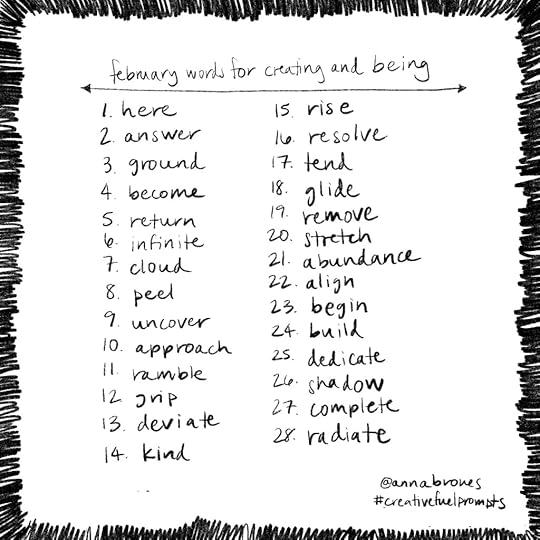 february words for creating and being
1. here
2. answer
3. ground
4. become
5. return
6. infinite
7. cloud
8. peel
9. uncover
10. approach
11. ramble
12. grip
13. deviate
14. kind
15. rise
16. resolve
17. tend
18. glide
19. remove
20. stretch
21. abundance
22. align
23. begin
24. build
25. dedicate
26. shadow
27. complete
28. radiate
@annabrones
#creativefuelprompts